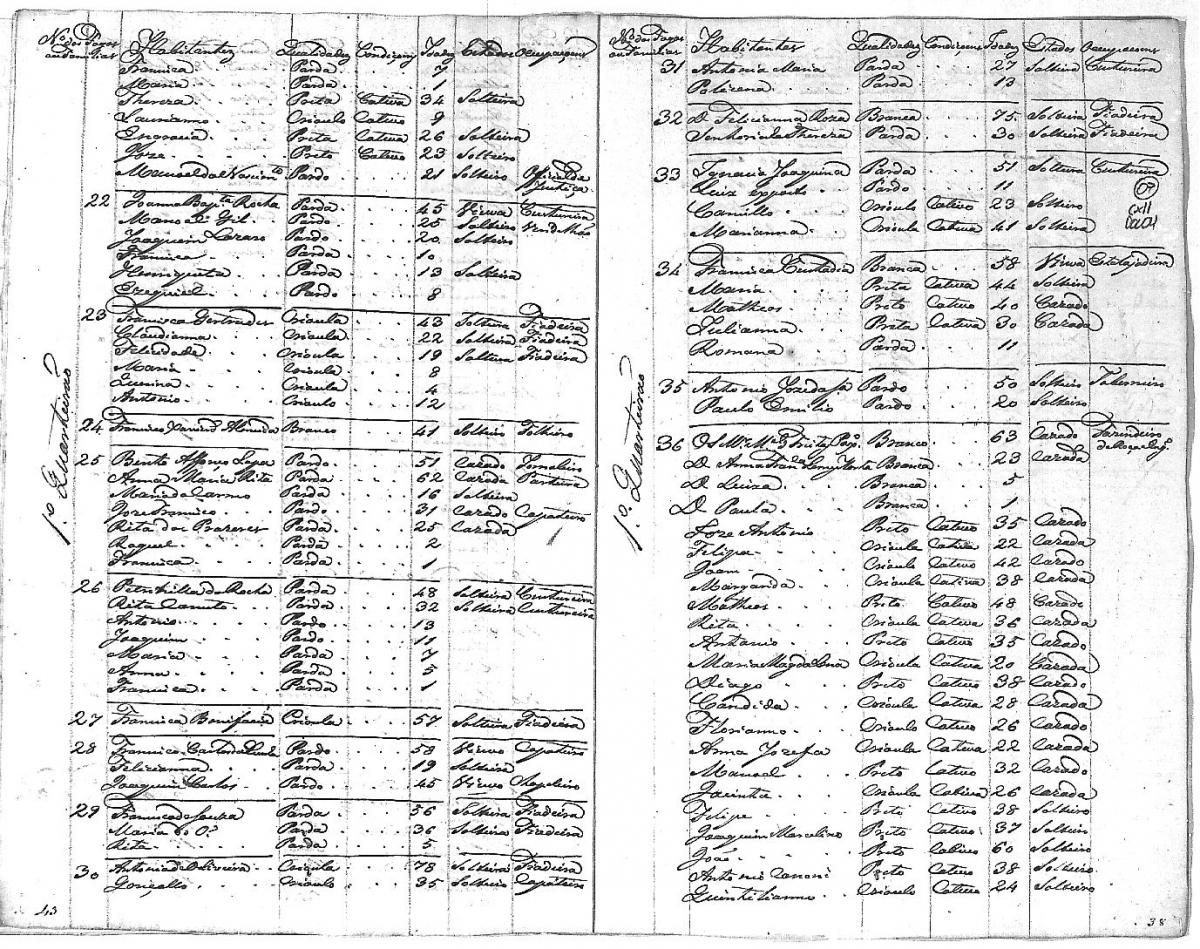 Nos dos Fogos ou Familias Habitantes Qualidades Condiçoens Idades Estados Ocupaçoens
Francisca Parda 7
Maria Parda 1
Thereza Preta Cativa 34 Solteira
Crioulo Cativo 9
Engracia Preta Cativa 26 Solteira
Joze Preto Cativo 23 Solteiro
Manoel do Nascimto Pardo 21 Solteiro Official de Justiça
22 Joanna Bapta Rocha Parda 45 Viuva Custureira
Manoel Gil Pardo 25 Solteiro
Joaquim Lazaro Pardo 20 Solteiro
Francisca Parda 10
Henriqueta Parda 13 Solteira
Ezequiel Pardo 8
23 Francisca Gertrudes Crioula 43 Solteira Fiadeira
Claudianna Crioula 22 Solteira Fiadeira
Felicidade Crioula 19 Solteira Fiadeira
Maria Crioula 8
Crioula 4
Antonio Crioulo 12
1o Quarteirão
24 Francisco Xavier Almeida Branco 41 Solteiro
25 Bento Affonso Lopes Pardo 51 Cazado Jornaleiro
Anna Maria Rita Parda 62 Cazada Parteira
Maria do Carmo Parda 16 Solteira
Joze Francisco Pardo 31 Cazado Çapateiro
Rita dos Prazeres Parda 25 Cazada
Raquel Parda 2
Francisca Parda 1
26 Petronilha da Rocha Parda 48 Solteira Custureira
Rita Parda 32 Solteira Custureira
Antonio Pardo 13
Joaquim Pardo 11
Maria Parda 7
Anna Parda 5
Francisca Parda 1
27 Francisca Bonifacia Crioula 57 Solteira Fiadeira
28 Francisco Pardo 58 Viuvo Çapateiro
Felicianna Parda 19 Solteira
Joaquim Carlos Pardo 45 Viuvo Chapeleiro
29 Francisca de Souza Parda 56 Solteira Fiadeira
Maria Parda 36 Solteira Fiadeira
Rita Parda 5
30 Antonia d'Oliveira Crioula 78 Solteira Fiadeira
Gonçallo Crioulo 35 Solteiro Çapateiro
Nos dos Fogos ou Familias Habitantes Qualidades Condiçoens Idades Estados Ocupaçoens
31 Antonia Maria Parda 27 Solteira Custureira
Policena Parda 13
32 D. Felicianna Roza Branca 75 Solteira Fiadeira
Senhorinha Thereza Parda 30 Solteira Fiadeira
33 Ignacia Joaquina Parda 51 Solteira Custureira
Luiz exposto Pardo 11
Camillo Crioulo Cativo 23 Solteiro
Marianna Crioula Cativa 41 Solteira
34 Francisca Custodia Branca 58 Viuva Estalajadeira
Maria Preta Cativa 44 Solteira
Matheos Preto Cativo 40 Cazado
Julianna Preta Cativa 30 Cazada
Romana Parda 11
1o Quarteirão
35 Antonio Joze da Sa Pardo 50 Solteiro Taberneiro
Paulo Emilio Pardo 20 Solteiro
36 Branco 63 Cazado Fazendeiro
D. Anna Branca 23 Cazada
D. Luiza Branca 5
D. Paula Branca 1
Joze Antonio Preto Cativo 35 Cazado
Felipa Crioula Cativa 22 Cazada
Joam Crioulo Cativo 42 Cazado
Margarida Crioula Cativa 38 Cazada
Matheos Preto Cativo 48 Cazado
Rita Crioula Cativa 36 Cazada
Antonio Preto Cativo 35 Cazado
Maria Magdalena Crioula Cativa 20 Cazada
Diogo Preto Cativo 38 Cazado
Candida Crioula Cativa 28 Cazada
Florianno Crioulo Cativo 26 Cazado
Anna Jozefa Crioula Cativa 22 Cazada
Manoel Preto Cativo 32 Cazado
Jacinta Crioula Cativa 26 Cazada
Felipe Preto Cativo 38 Solteiro
Joaquim Marcelino Preto Cativo 37 Solteiro
João Preto Cativo 60 Solteiro
Antonio Preto Cativo 38 Solteiro
Quintilianno Crioulo Cativo 24 Solteiro
43
38